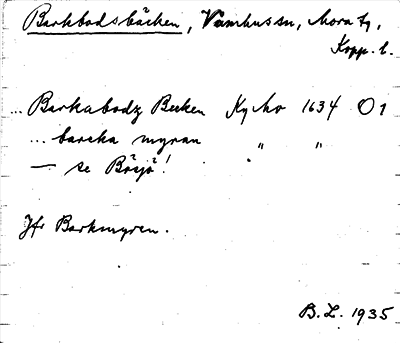 Barkbodsbäcken, Våmhus sn, Mora tg,
Kopp. l.
... Barkabodz Becken Kyrko 1634 O 1
... barcka myran " "
— se Bösjö!
Jfr Barkmyren.
B.L. 1935